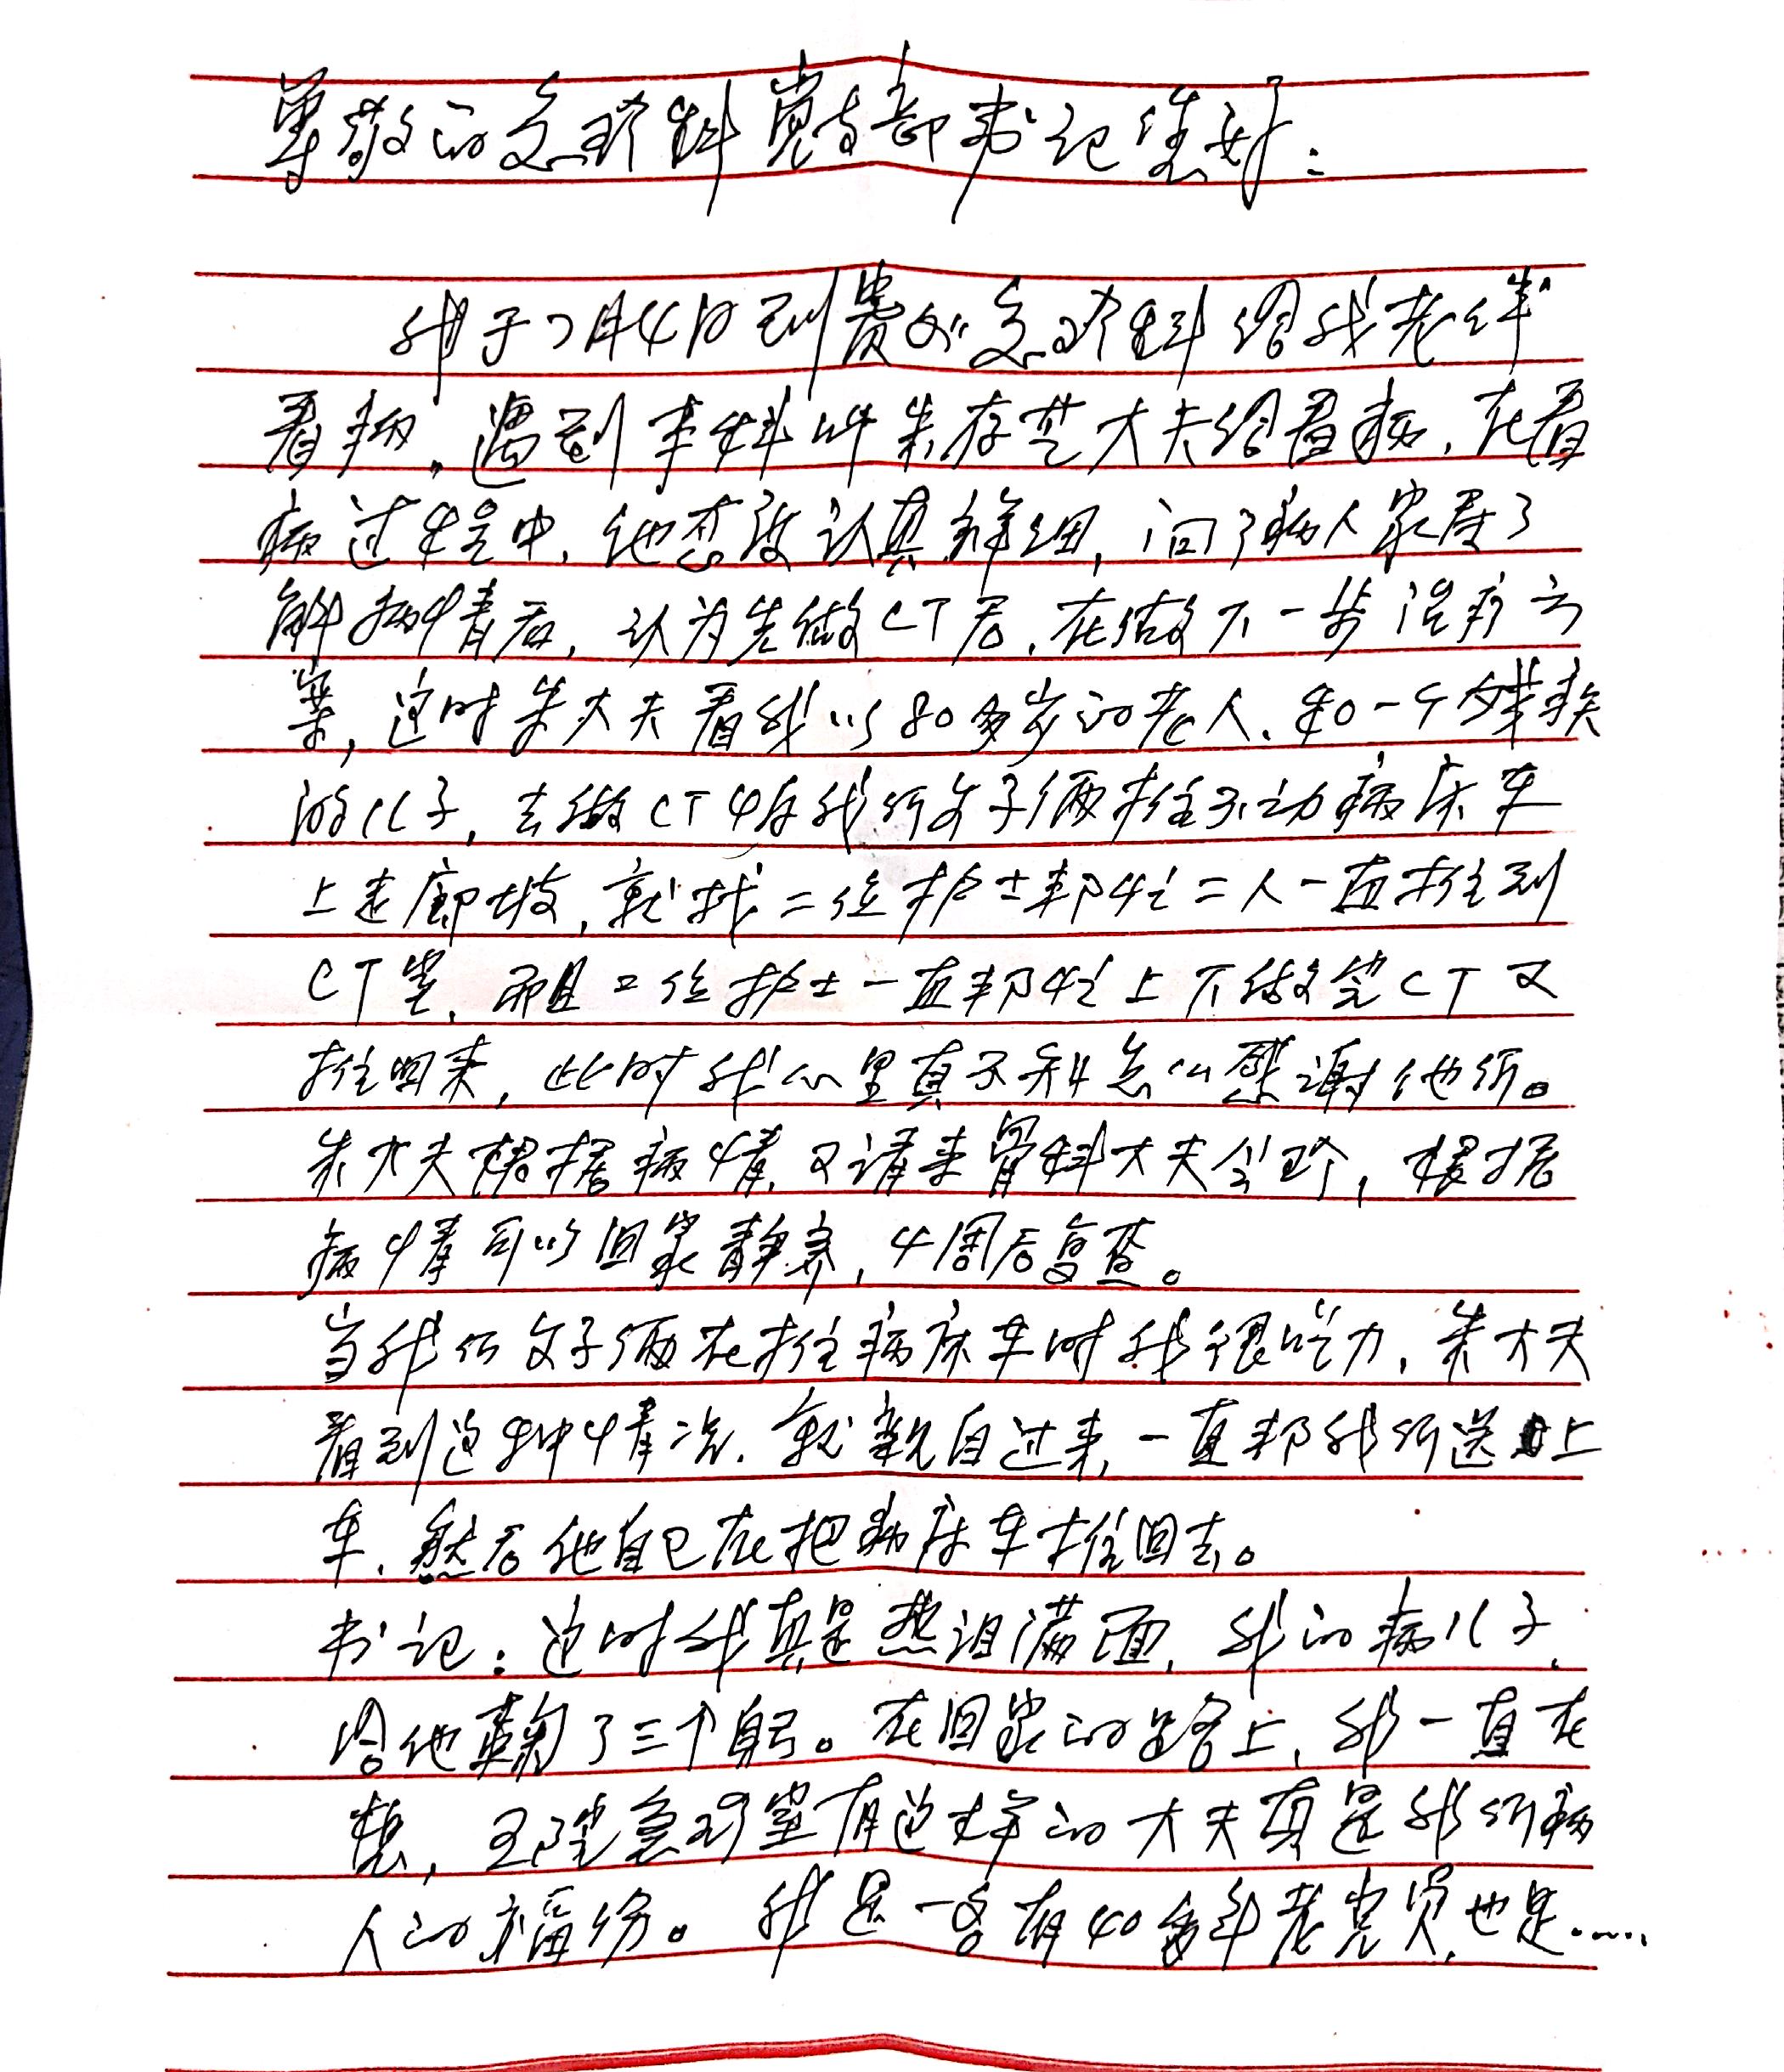 尊敬的急诊科党支部书记您好：
我于7月4日到贵处急诊科给我老伴
看病。遇到本科叫朱存芝大夫给看病，在看
病过程中，他态度认真详细，问了病人家属了
解病情后，认为先做CT后，在做下一步治疗方
案，这时朱大夫看我以80多岁的老人、和一个残疾
的儿子，去做CT怕我们父子俩推不动病床车
上走廊坡，就找二位护士帮忙二人一直推到
CT室，而且二位护士一直帮忙上下做完CT又
推回来，此时我心里真不知怎么感谢他们。
朱大夫根据病情，又请来骨科大夫会诊，根据
病情可以回家静养，4周后复查。
当我们父子俩在推病床车时我很吃力，朱大夫
看到这种情况，就亲自过来，一直帮我们送上
车，然后他自己在把病床车推回去。
书记：这时我真是热泪满面，我的病儿子，
给他鞠了三个躬。在回家的路上，我一直在
想，医院急诊室有这样的大夫真是我们病
人的福份。我是一名有40多年老党员，也是……